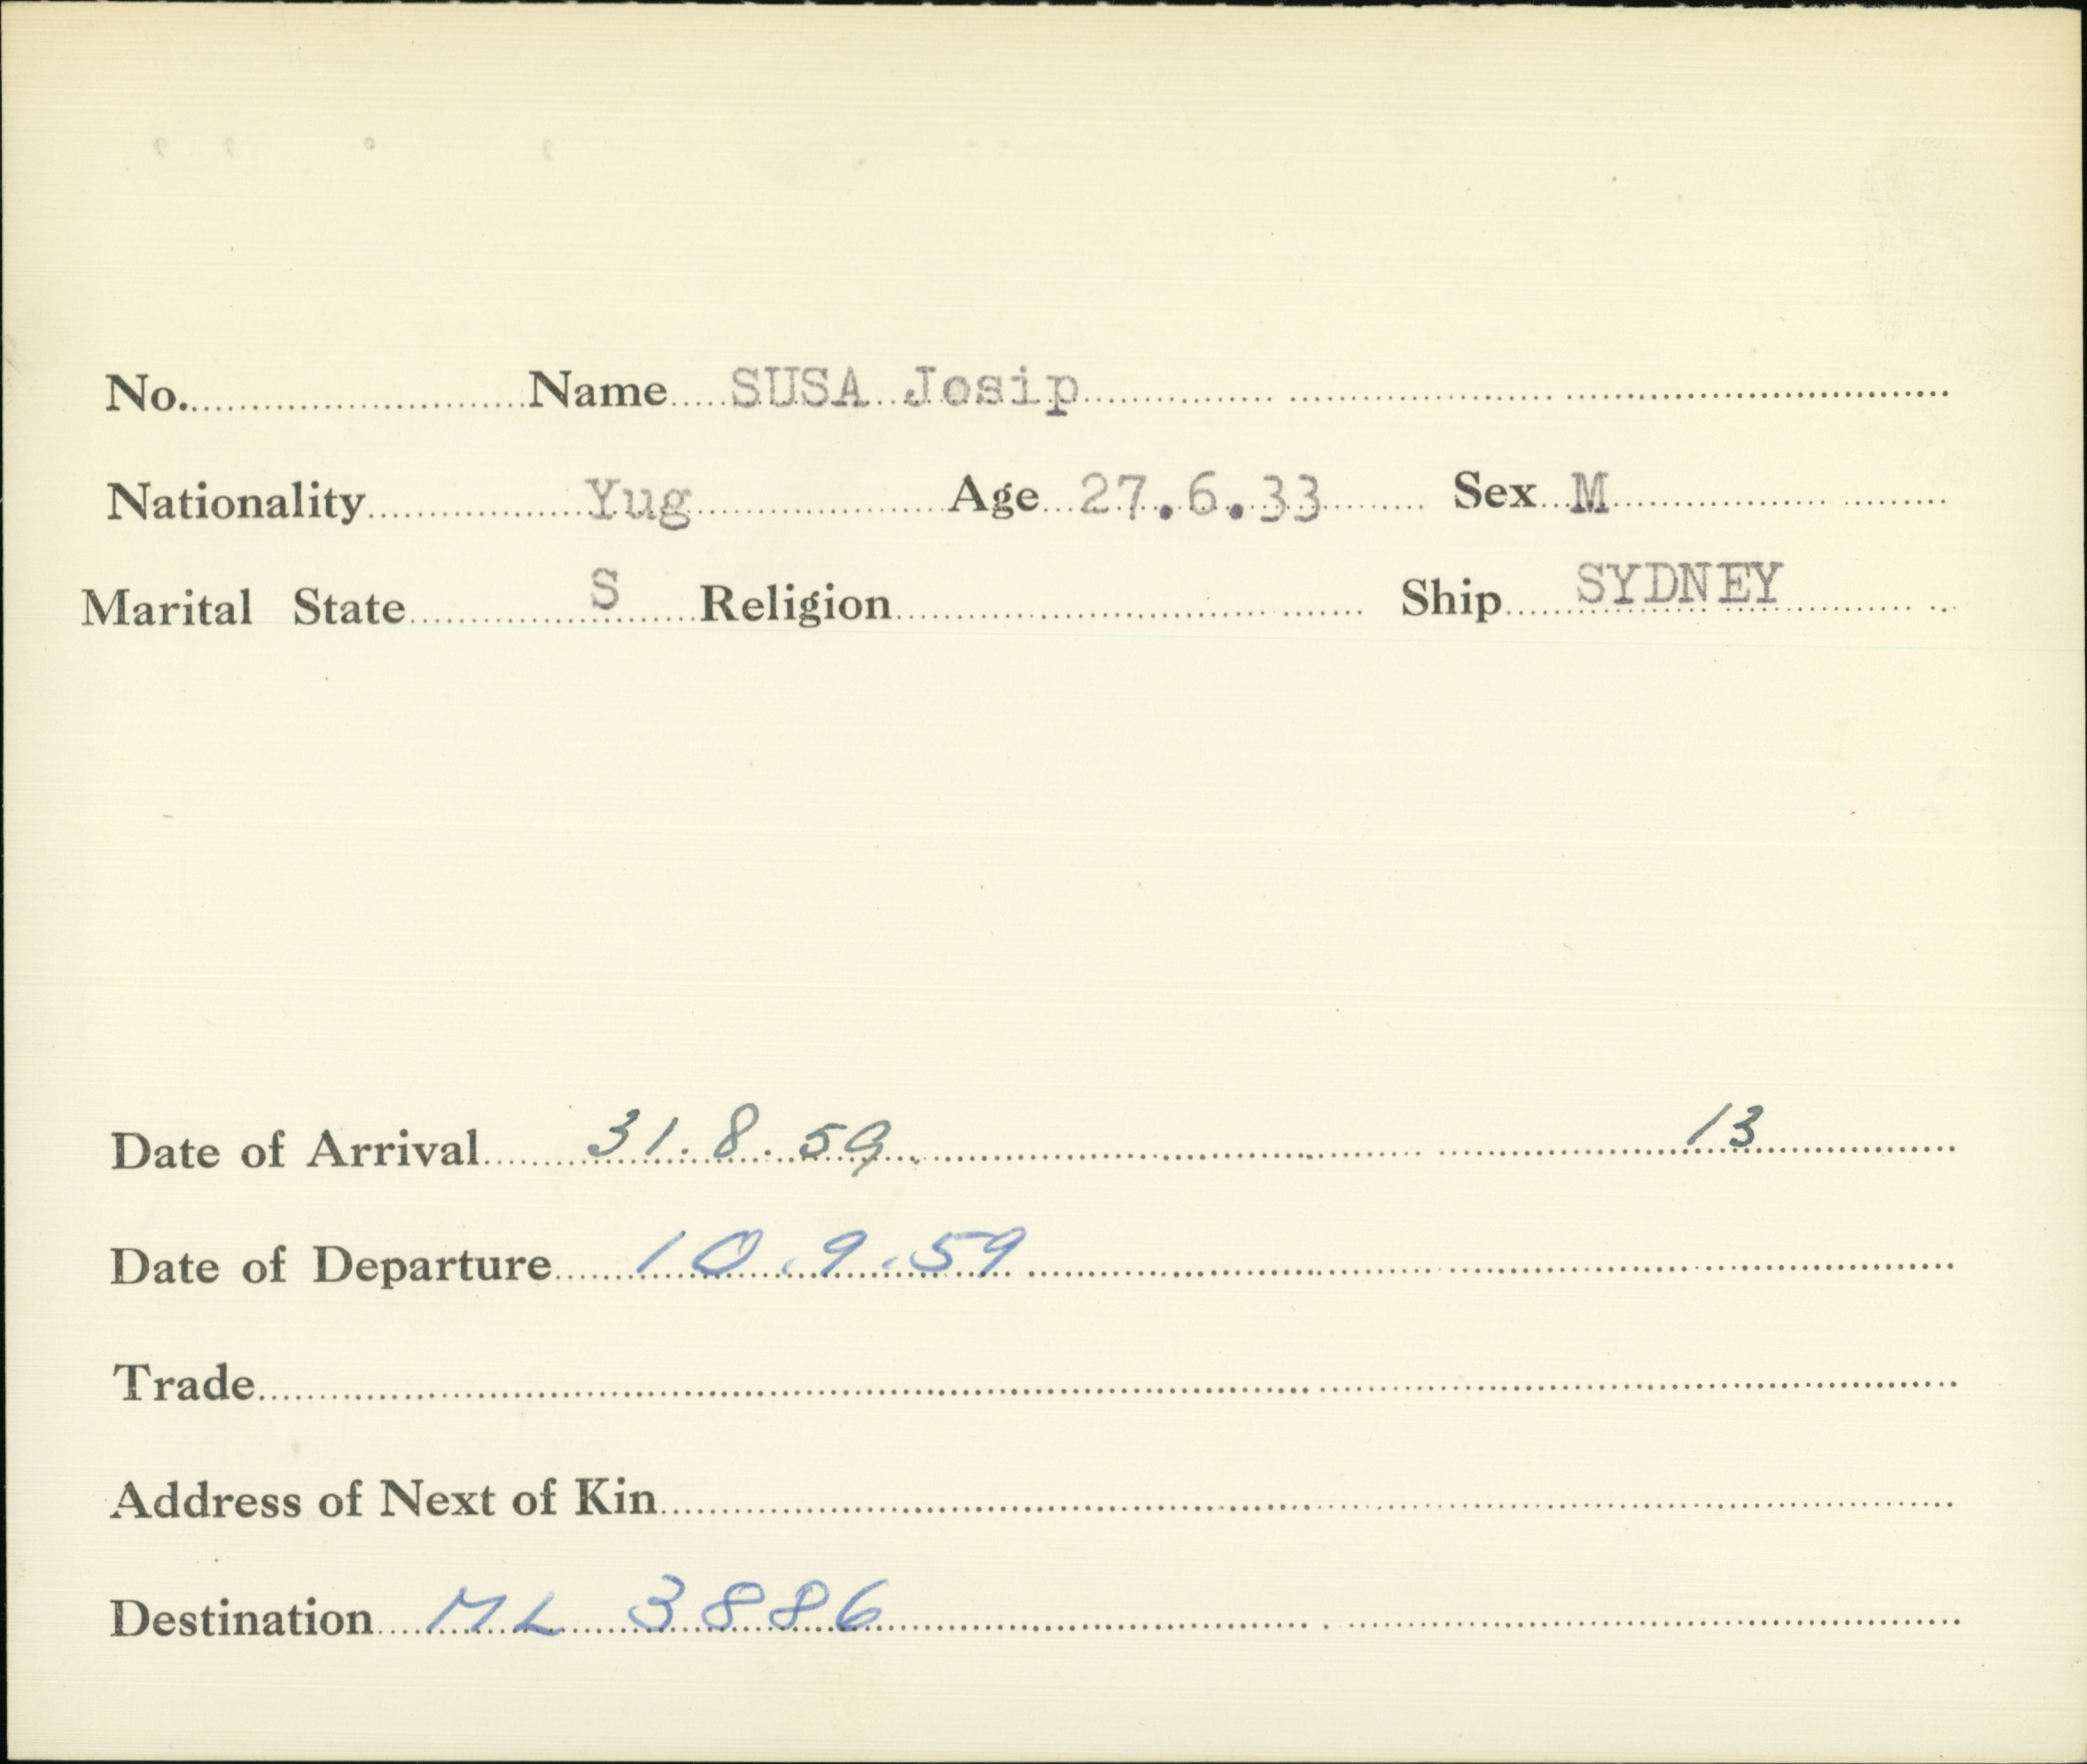 No. Name SUSA Josip
Nationality Yug Age 27.6.33 Sex M
Marital State S Religion Ship SYDNEY
Date of Arrival 31.8.59. 13
Date of Departure 10.9.59
Trade
Address of Next of Kin
Destination ML 3886